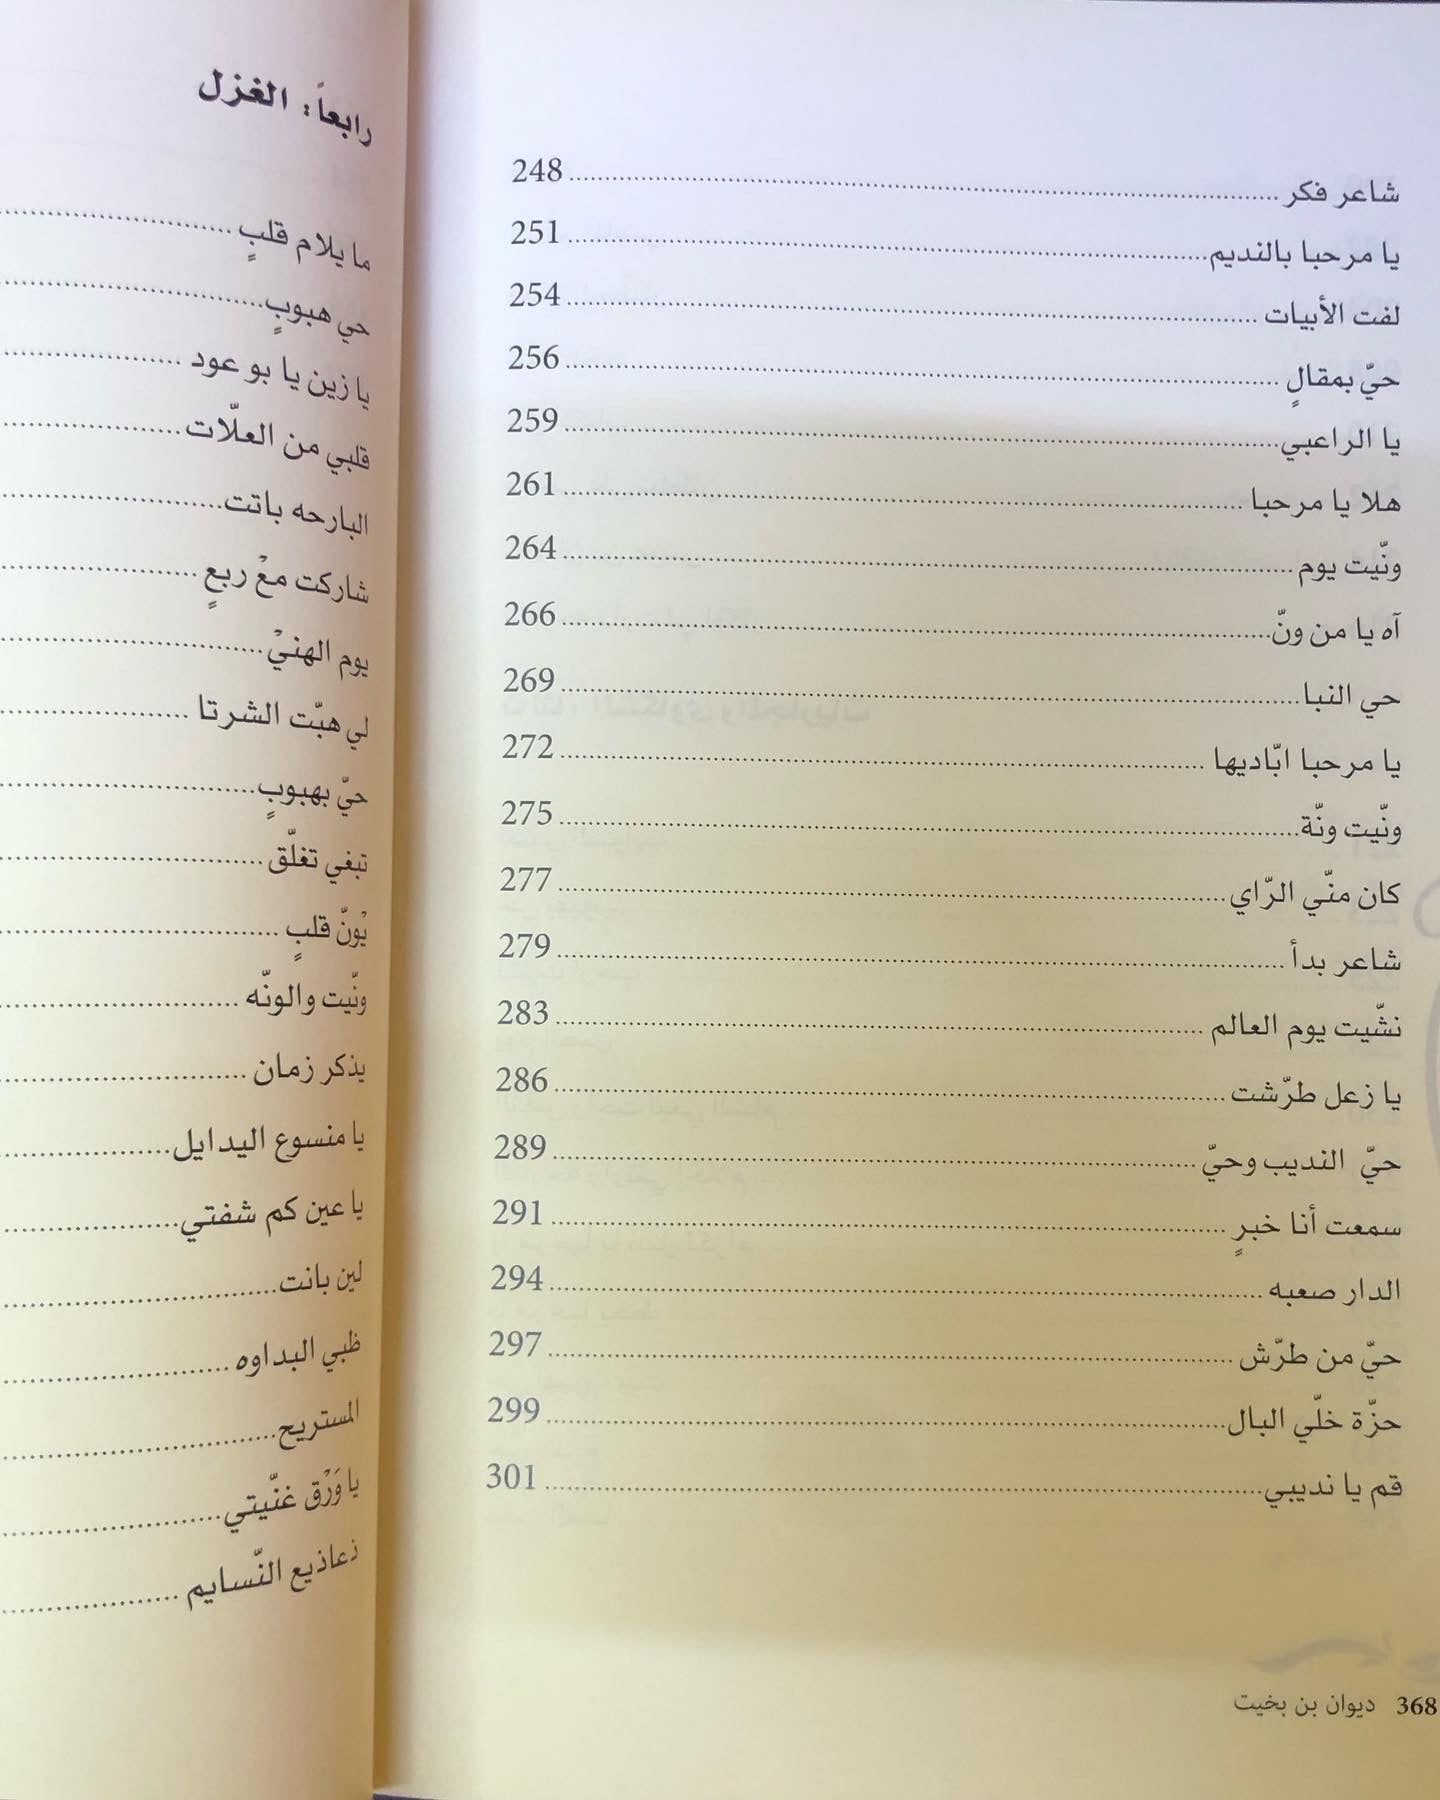 شاعر فكر 248
يا مرحبا بالنديم 251
لفت الأبيات 254
حيّ بمقالٍ 256
يا الراعبي 259
هلا يا مرحبا 261
ونّيت يوم 264
آه يا من ونّ 266
حي النبا 269
يا مرحبا ابّاديها 272
ونّيت ونّة 275
كان منّي الرّاي 277
شاعر بدأ 279
نشّيت يوم العالم 283
يا زعل طرّشت 286
حيّ النديب وحيّ 289
سمعت أنا خبرٍ 291
الدار صعبه 294
حيّ من طرّش 297
حزّة خلّي البال 299
قم يا نديبي 301
368 ديوان بن بخيت
رابعاً: الغزل
ما يلام قلبٍ
حي هبوبٍ
يا زين يا بو عود
قلبي من العلّات
البارحه باتت
شاركت معْ ربعٍ
يوم الهنيْ
لي هبّت الشرتا
حيّ بهبوبٍ
تبغي تغلّق
يْونّ قلبٍ
ونّيت والونّه
يذكر زمان
يا منسوع اليدايل
يا عين كم شفتي
لين بانت
ظبي البداوه
المستريح
يا وَرْق غنّيتي
ذعاذيع النّسايم